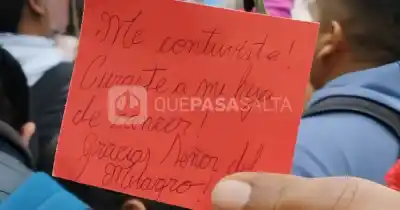 Me contuviste!
Curaste a mi hija
de cancer!
Gracias Señor del
Milagro!
QUEPASASALTA